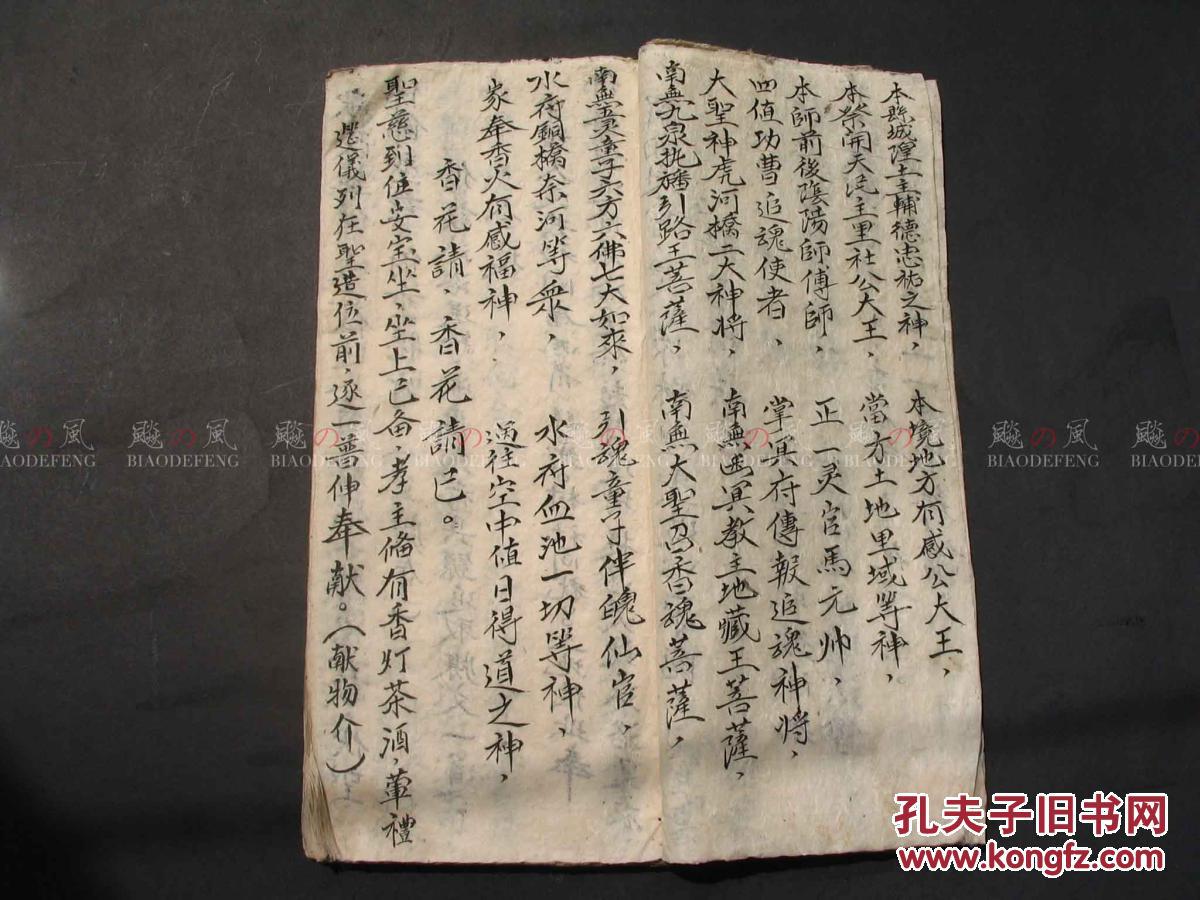 本縣城隍土主輔德忠祐之神，本境地方有感公大王，
本祭開天民主里社公大王，當方土地里域等神，
本師前後陰陽師傅師，正一灵官馬元帅，
四值功曹追魂使者，掌冥府傳報追魂神将，
大聖神虎河橋二大神将，南無幽冥教主地藏王菩薩，
南無九泉旛引路王菩薩，南無大聖召香魂菩薩，
南無灵童子六方六佛七大如來，引魂童子伴魄仙官，
水府銅橋奈河等衆，水府血池一切等神，
家奉香火有感福神，過往空中值日得道之神，
香花請，香花請已。
聖慈列位安宝坐，坐上已备，孝主俻有香灯茶酒，葷禮
儀列在聖造位前，逐一普伸奉献。（献物介）
飚の風 飚の風 飚の風 飚の風 飚の風
BIAODEFENG BIAODEFENG BIAODEFENG BIAODEFENG BIAODEFENG
孔夫子旧书网
www.kongfz.com